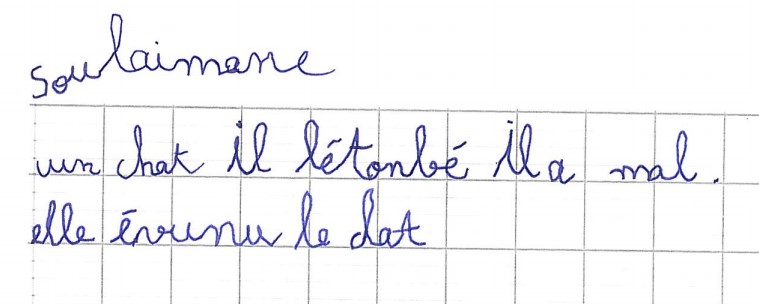 Soulaimane
un chat il létonbé il a mal.
elle évunu le dat